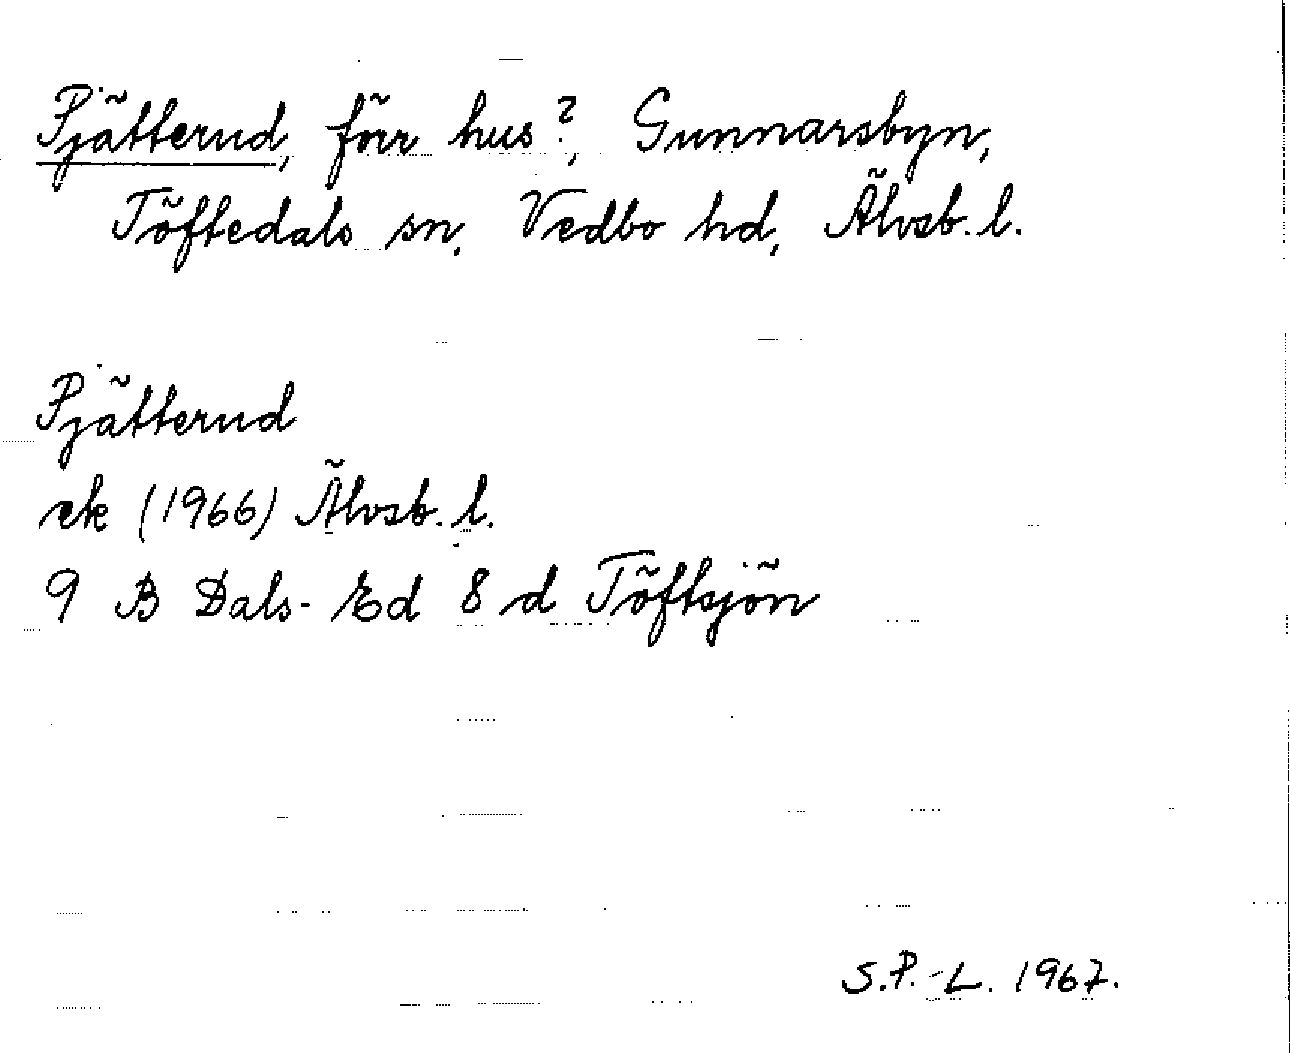 Pjätterud, förr hus?, Gunnarsbyn,
Töftedals sn, Vedbo hd, Älvsb. l.
Pjätterud
ek (1966) Älvsb. l.
9 B Dals-Ed 8 d Töftsjön
S.P.-L. 1967.